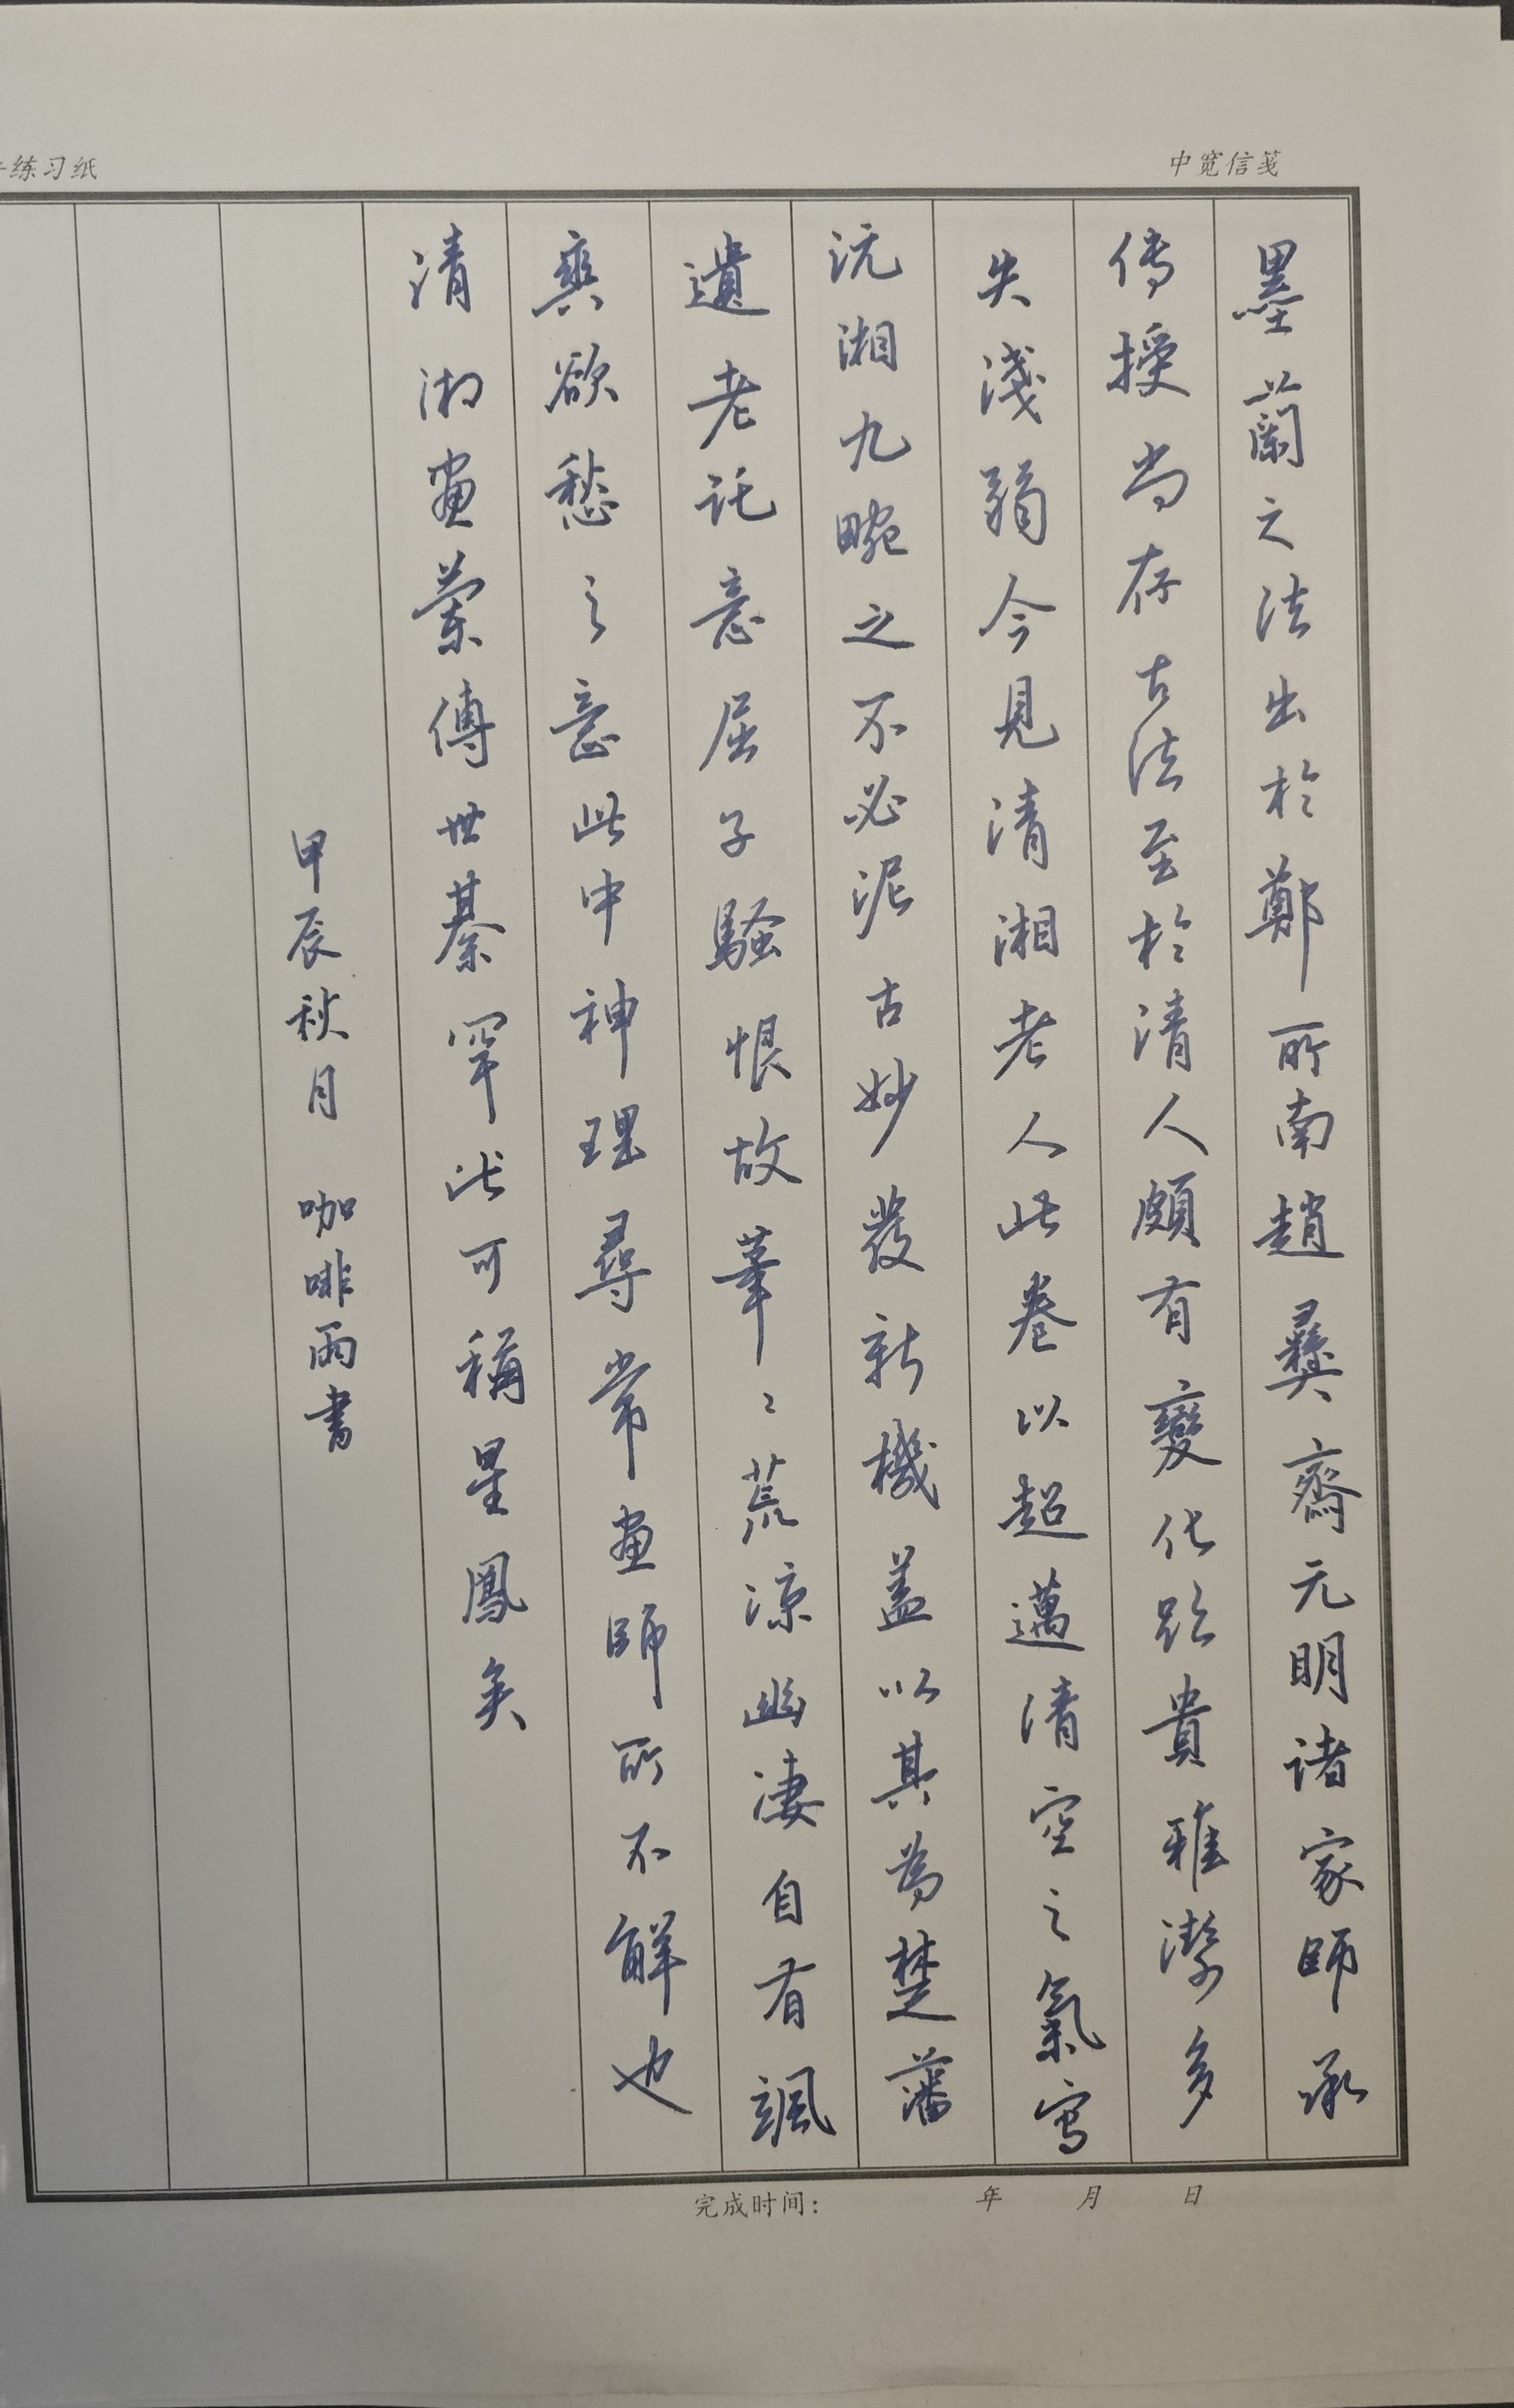 练习纸
中宽信笺
墨蘭之法出於鄭所南趙彝齋元明诸家師承
传授尚存古法至於清人頗有變化貴雅潔多
失淺弱今見清湘老人此卷以超邁清空之氣寫
沅湘九畹之不必泥古妙發新機蓋以其為楚藩
遺老託意屈子騷恨故葦〻荒涼幽淒自有颯
爽欲愁之意此中神理尋常畫師所不解也
清湘畫蘭傳世綦罕此可稱星鳳矣
甲辰秋月 咖啡雨書
完成时间： 年 月 日